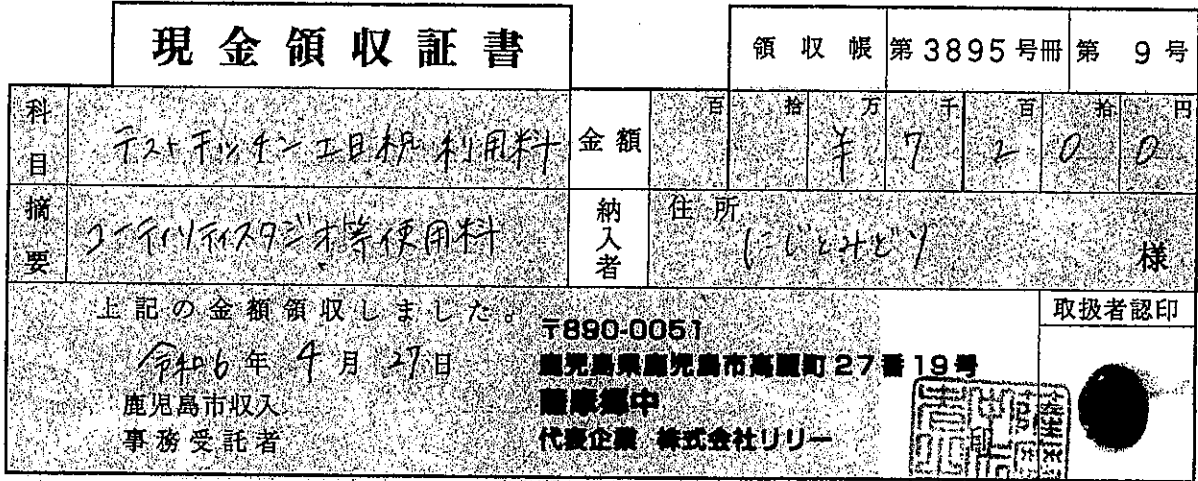 現金領収証書
領収帳 第3895号冊 第 9号
科目 テストキッチン工日枳 利用料 金額 百 拾 万 千 百 拾 円
¥7200
摘要 ユーティリティスタジオ等使用料 納入者 住所
にじとみどり 様
上記の金額領収しました。
令和6年 4月 27日
鹿児島市収入
事務受託者
〒890-0051
鹿児島県鹿児島市高麗町27番19号
薩摩郷中
代表企業 株式会社リリー
取扱者認印